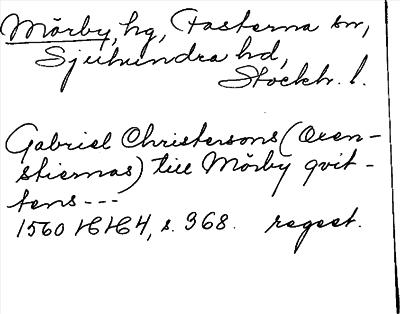 Mörby, hg, Fasterna sn,
Sjuhundra hd,
Stockh. l.
Gabriel Christersons (Oxen-
stiernas) till Mörby qvit-
tens ---
1560 HH4, s. 368. regest.